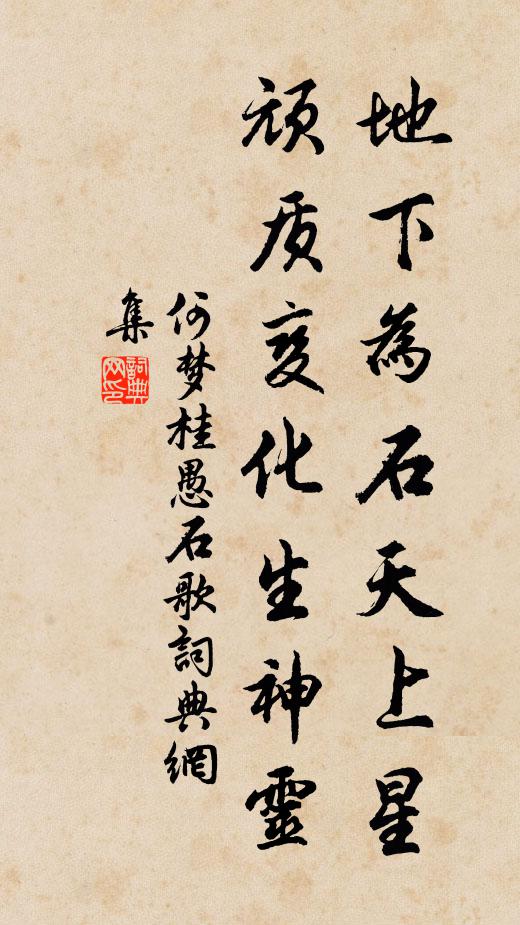 地下為石天上星
頑质变化生神靈
何梦桂愚石歌詞典網
集
詞典网印